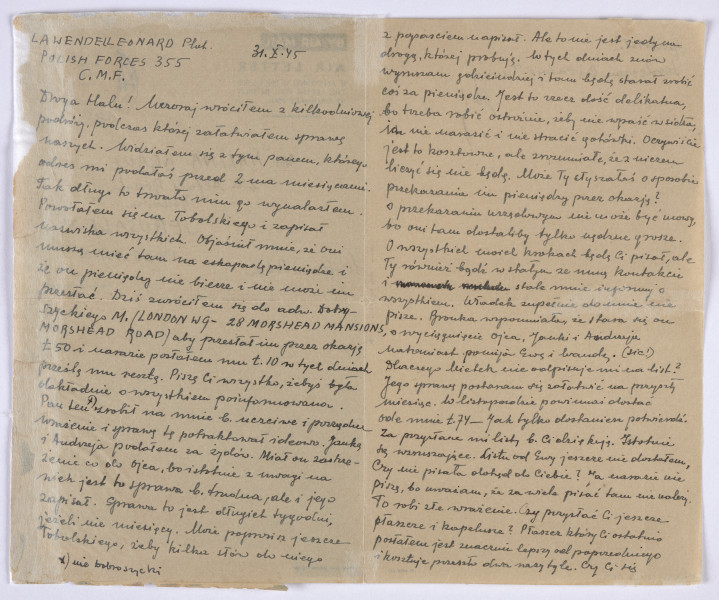 LAWENDEL LEONARD Plut.
POLISH FORCES 355
C.M.F.
31.X.45
Droga Halu! Wczoraj wróciłem z kilkodniowej
podróży, podczas której załatwiałem sprawę
naszych. Widziałem się z tym panem, którego
adres mi podałaś przed 2 ma miesiącami.
Tak długo to trwało nim go wynalazłem.
Powołałem się na Tobolskiego i zapisał
nazwiska wszystkich. Objaśnił mnie, że oni
muszą mieć tam na eskapadę pieniądze i
że on pieniędzy nie bierze i nie może im
przesłać. Dziś zwróciłem się do adw. Dobro-
szyckiego M. (LONDON W9- 28 MORSHEAD MANSIONS,
MORSHEAD ROAD) aby przesłał im przez okazję
£ 50 i narazie posłałem mu £. 10 w tych dniach
prześlę mu resztę. Piszę Ci wszystko, żebyś była
dokładnie o wszystkiem poinformowana.
Pan ten x) zrobił na mnie b. uczciwe i porządne
wrażenie i sprawę tę potraktował ideowo. Jankę
i Andrzeja podałem za żydów. Miał on zastrze-
żenie co do ojca, bo istotnie z uwagi na
wiek jest to sprawa b. trudna, ale i jego
zapisał. Sprawa to jest długich tygodni,
jeżeli nie miesięcy. Może poprosisz jeszcze
Tobolskiego, żeby kilka słów do niego
x) nie dobroszycki
z poparciem napisał. Ale to nie jest jedyna
droga, której próbuję. W tych dniach znów
wyruszam gdzieindziej i tam będę starał zrobić
coś za pieniądze. Jest to rzecz dość delikatna,
bo trzeba robić ostrożnie, żeby nie wpaść w sidła,
nie narazić i nie stracić gotówki. Oczywiście
jest to kosztowne, ale zrozumiałe, że z niczem
liczyć się nie będę. Może Ty słyszałaś o sposobie
przekazania im pieniędzy przez okazję?
O przekazaniu urzędowym nie może być mowy,
bo oni tam dostaliby tylko nędzne grosze.
O wszystkich moich krokach będę Ci pisał, ale
Ty również bądź w stałym ze mną kontakcie
i stale mnie informuj o
wszystkiem. Władek zupełnie do mnie nie
pisze. Bronka wspominała, że stara się on
o wyciągnięcie ojca, Janki i Andrzeja
natomiast pomija Ewę i Wandę. (sic!)
Dlaczego Mietek nie odpisuje mi na list?
Jego sprawę postaram się załatwić na przyszły
miesiąc. W listopadzie powinnaś dostać
ode mnie £ 74 – Jak tylko dostaniesz potwierdź.
Za przysłane mi listy b. Ci dziękuję. Istotnie
są wzruszające. Listu od Ewy jeszcze nie dostałem,
Czy nie pisała dotąd do Ciebie? Ja narazie nie
piszę, bo uważam, że za wiele pisać tam nie należy.
To robi złe wrażenie. Czy przysłać Ci jeszcze
płaszcze i kapelusze? Płaszcz który Ci ostatnio
posłałem jest znacznie lepszy od poprzedniego
i kosztuje przeszło dwa razy tyle. Czy Ci się